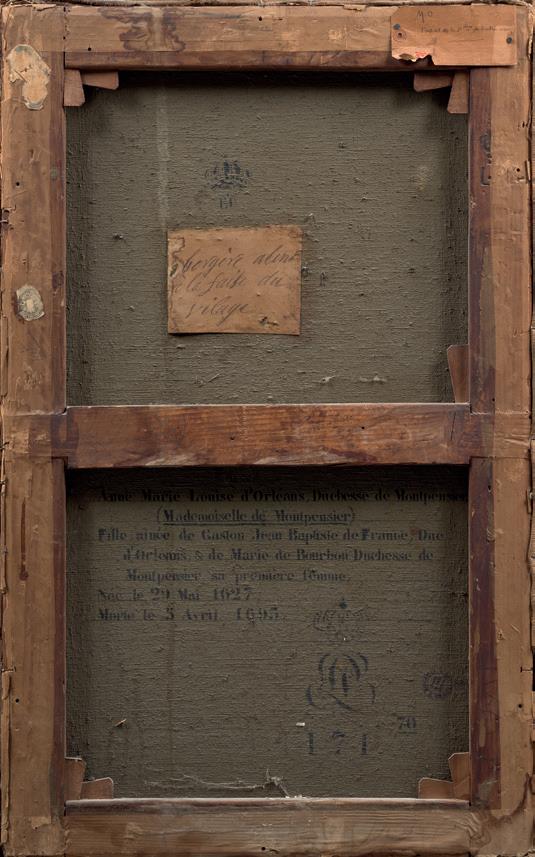 MO
bergère
du
vilage
Anne Marie Louise d'Orleans, Duchesse de Montpensier
(Mademoiselle de Montpensier)
Fille ainée de Gaston Jean Baptiste de France, Duc
d'Orleans, & de Marie de Bourbon Duchesse de
Montpensier sa première femme.
Née le 29 Mai 1627.
Morte le 5 Avril 1693.
70
171